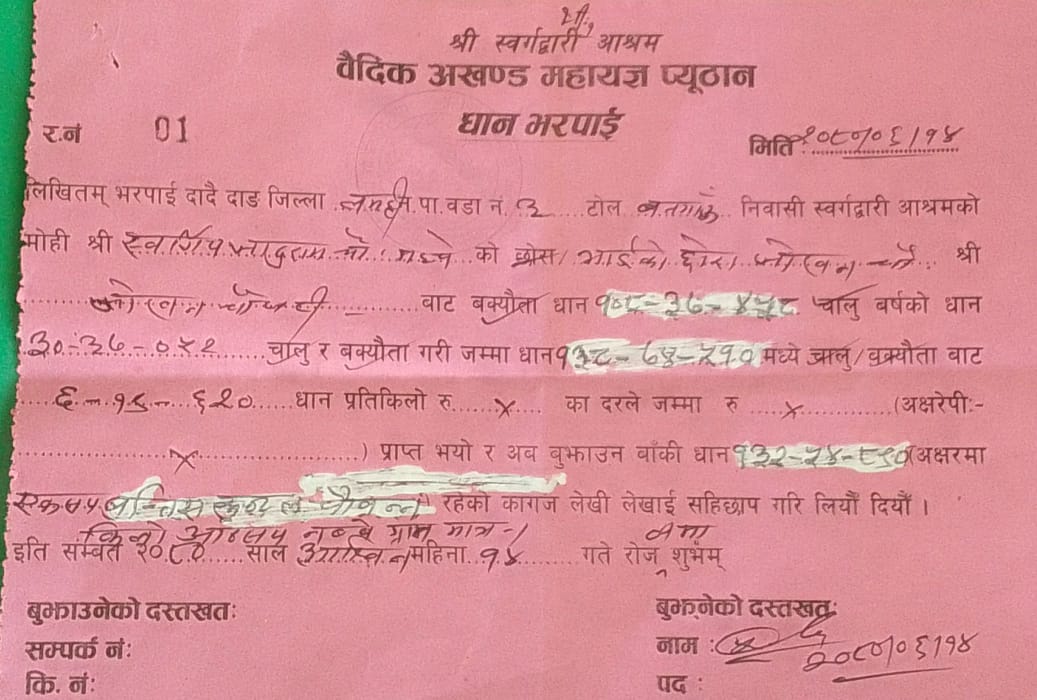 श्री.
श्री स्वर्गद्वारी आश्रम
वैदिक अखण्ड महायज्ञ प्यूठान
धान भरपाई
र.नं 01
मिति २०८०/०६/१४
लिखितम् भरपाई दादै दाङ जिल्ला लमही न.पा. वडा नं. ३ टोल निवासी स्वर्गद्वारी आश्रमको
मोही श्री स्वर्गिय को छोरा/ भाईको छोरा श्री
बाट बक्यौता धान १०८-३६-४५८ चालु वर्षको धान
३०-३८-०५२ चालु र बक्यौता गरी जम्मा धान १३८-७४-५१० मध्ये चालु/बक्यौता बाट
६-१९-६२० धान प्रतिकिलो रु. x का दरले जम्मा रु x (अक्षरेपी:-
x ) प्राप्त भयो र अब बुझाउन बाँकी धान १३२-५४-८९० (अक्षरमा
एकसय बत्तिस कुण्टल चौवन्न रहेको कागज लेखी लेखाई सहिछाप गरि लियौं दियौं ।
किलो आठसय नब्बे ग्राम मात्र ।
इति सम्बत २०८० साल आश्विन महिना १४ गते रोज शुभम्
बुझाउनेको दस्तखत:
सम्पर्क नं:
कि. नं:
बुझ्नेको दस्तखत:
नाम :
२०८०/०६/१४
पद :